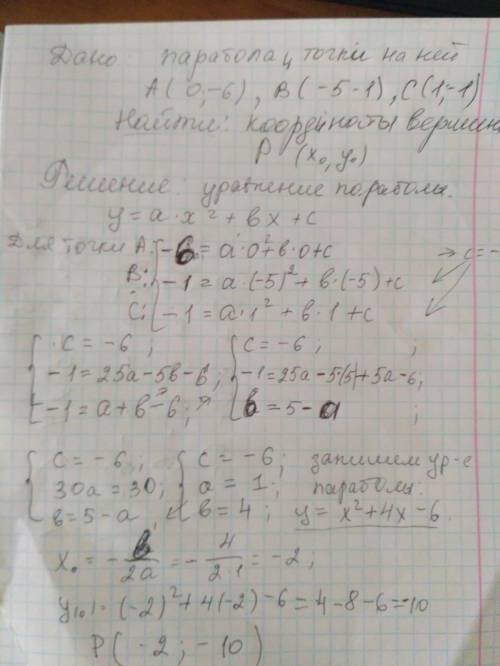 Дано парабола и точки на ней
A(0,-6), B(-5-1), C(1,-1)
Найти: координаты вершины
P (x₀, y₀)
Решение: уравнение параболы.
y=a·x²+вx+c
Для точки A: { -6=a·0²+в·0+c → c=-
B: { -1=a·(-5)²+в·(-5)+c
C: { -1=a·1²+в·1+c
{ c=-6; { c=-6, ;
{ -1=25a-5в-6; { -1=25a-5·(5)+5a-6,
{ -1=a+в-6; { в=5-a ;
{ c=-6; { c=-6; запишем ур-е
{ 30a=30; { a=1; параболы.
{ в=5-a { в=4; y=x²+4x-6.
x₀=-в/2a=-4/2·1=-2,
y(₀)=(-2)²+4(-2)-6=4-8-6=-10
P(-2;-10)